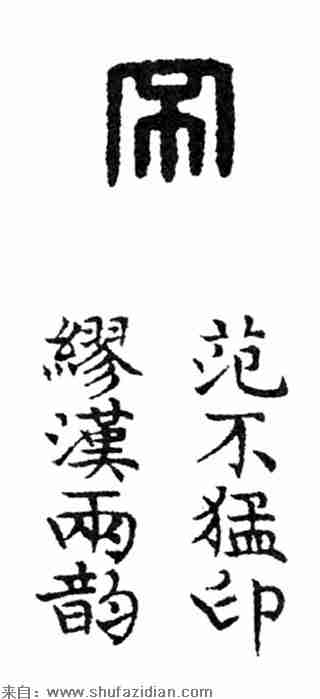 范不猛印
繆漢兩韵
来自：www.shufazidian.com